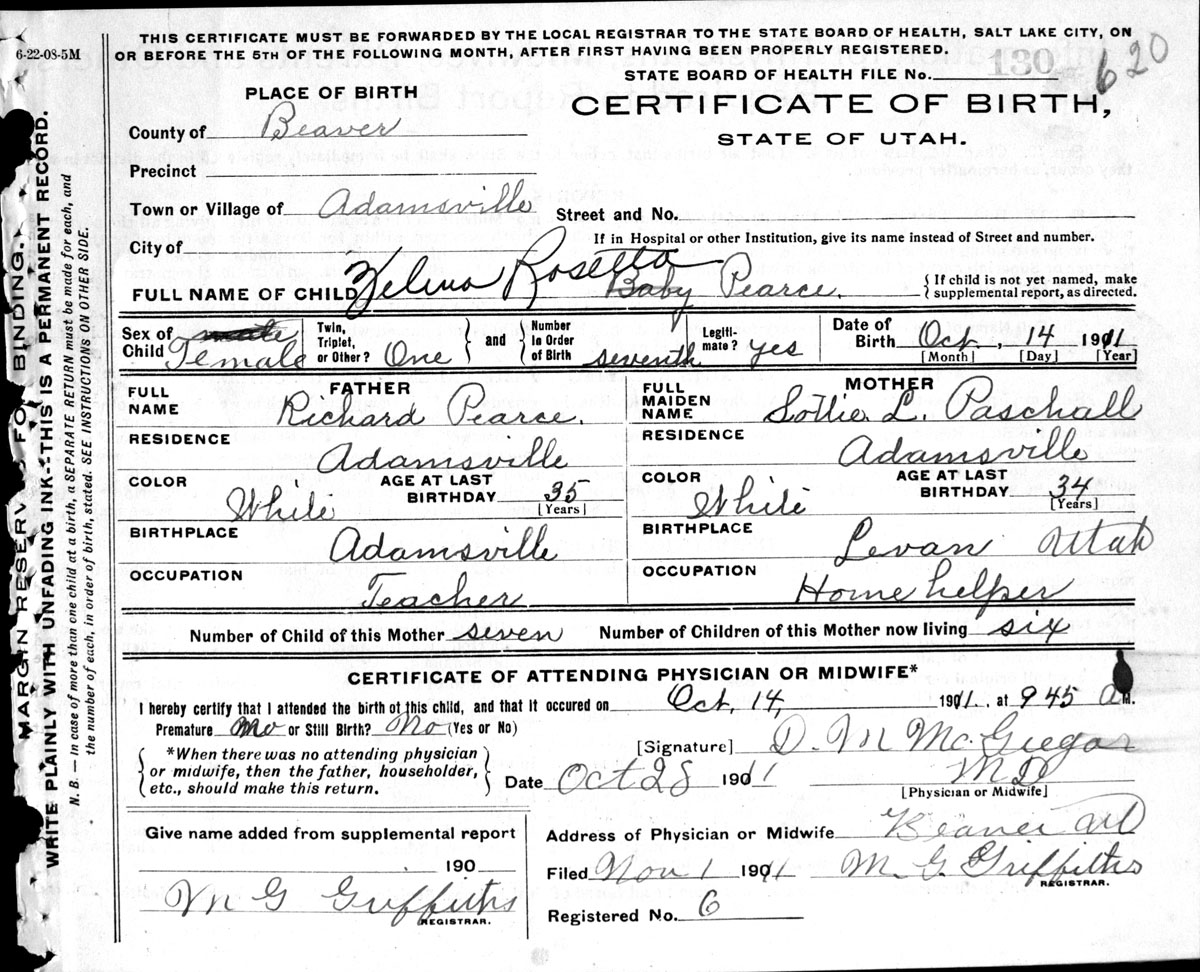 THIS CERTIFICATE MUST BE FORWARDED BY THE LOCAL REGISTRAR TO THE STATE BOARD OF HEALTH, SALT LAKE CITY, ON
OR BEFORE THE 5TH OF THE FOLLOWING MONTH, AFTER FIRST HAVING BEEN PROPERLY REGISTERED.
6-22-08-5M
STATE BOARD OF HEALTH FILE No. 130 620
PLACE OF BIRTH
CERTIFICATE OF BIRTH,
STATE OF UTAH.
County of Beaver
Precinct
Town or Village of Adamsville Street and No.
City of If in Hospital or other Institution, give its name instead of Street and number.
FULL NAME OF CHILD Zelma Rosetta Baby Pearce. { If child is not yet named, make
supplemental report, as directed.
Sex of Child male Female
Twin, Triplet, or Other? One } and { Number in Order of Birth seventh
Legiti-mate? yes
Date of Birth Oct, 14 1901
[Month] [Day] [Year]
FATHER
FULL NAME Richard Pearce.
RESIDENCE Adamsville
COLOR White AGE AT LAST BIRTHDAY 35 [Years]
BIRTHPLACE Adamsville
OCCUPATION Teacher
MOTHER
FULL MAIDEN NAME Lottie L. Paschall
RESIDENCE Adamsville
COLOR White AGE AT LAST BIRTHDAY 34 [Years]
BIRTHPLACE Levan Utah
OCCUPATION Home helper
Number of Child of this Mother seven Number of Children of this Mother now living six
CERTIFICATE OF ATTENDING PHYSICIAN OR MIDWIFE*
I hereby certify that I attended the birth of this child, and that it occured on Oct, 14, 1911. at 9 45 a m.
Premature No or Still Birth? No (Yes or No)
{ *When there was no attending physician
or midwife, then the father, householder,
etc., should make this return. }
[Signature] D. M McGregor
Date Oct 28 1911 M D
[Physician or Midwife]
Give name added from supplemental report
190
M G Griffiths
REGISTRAR.
Address of Physician or Midwife Beaver Ut
Filed Nov 1 1911 M. G. Griffiths
REGISTRAR.
Registered No. 6
MARGIN RESERVED FOR BINDING.
WRITE PLAINLY WITH UNFADING INK--THIS IS A PERMANENT RECORD.
N. B. — In case of more than one child at a birth, a SEPARATE RETURN must be made for each, and
the number of each, in order of birth, stated. SEE INSTRUCTIONS ON OTHER SIDE.